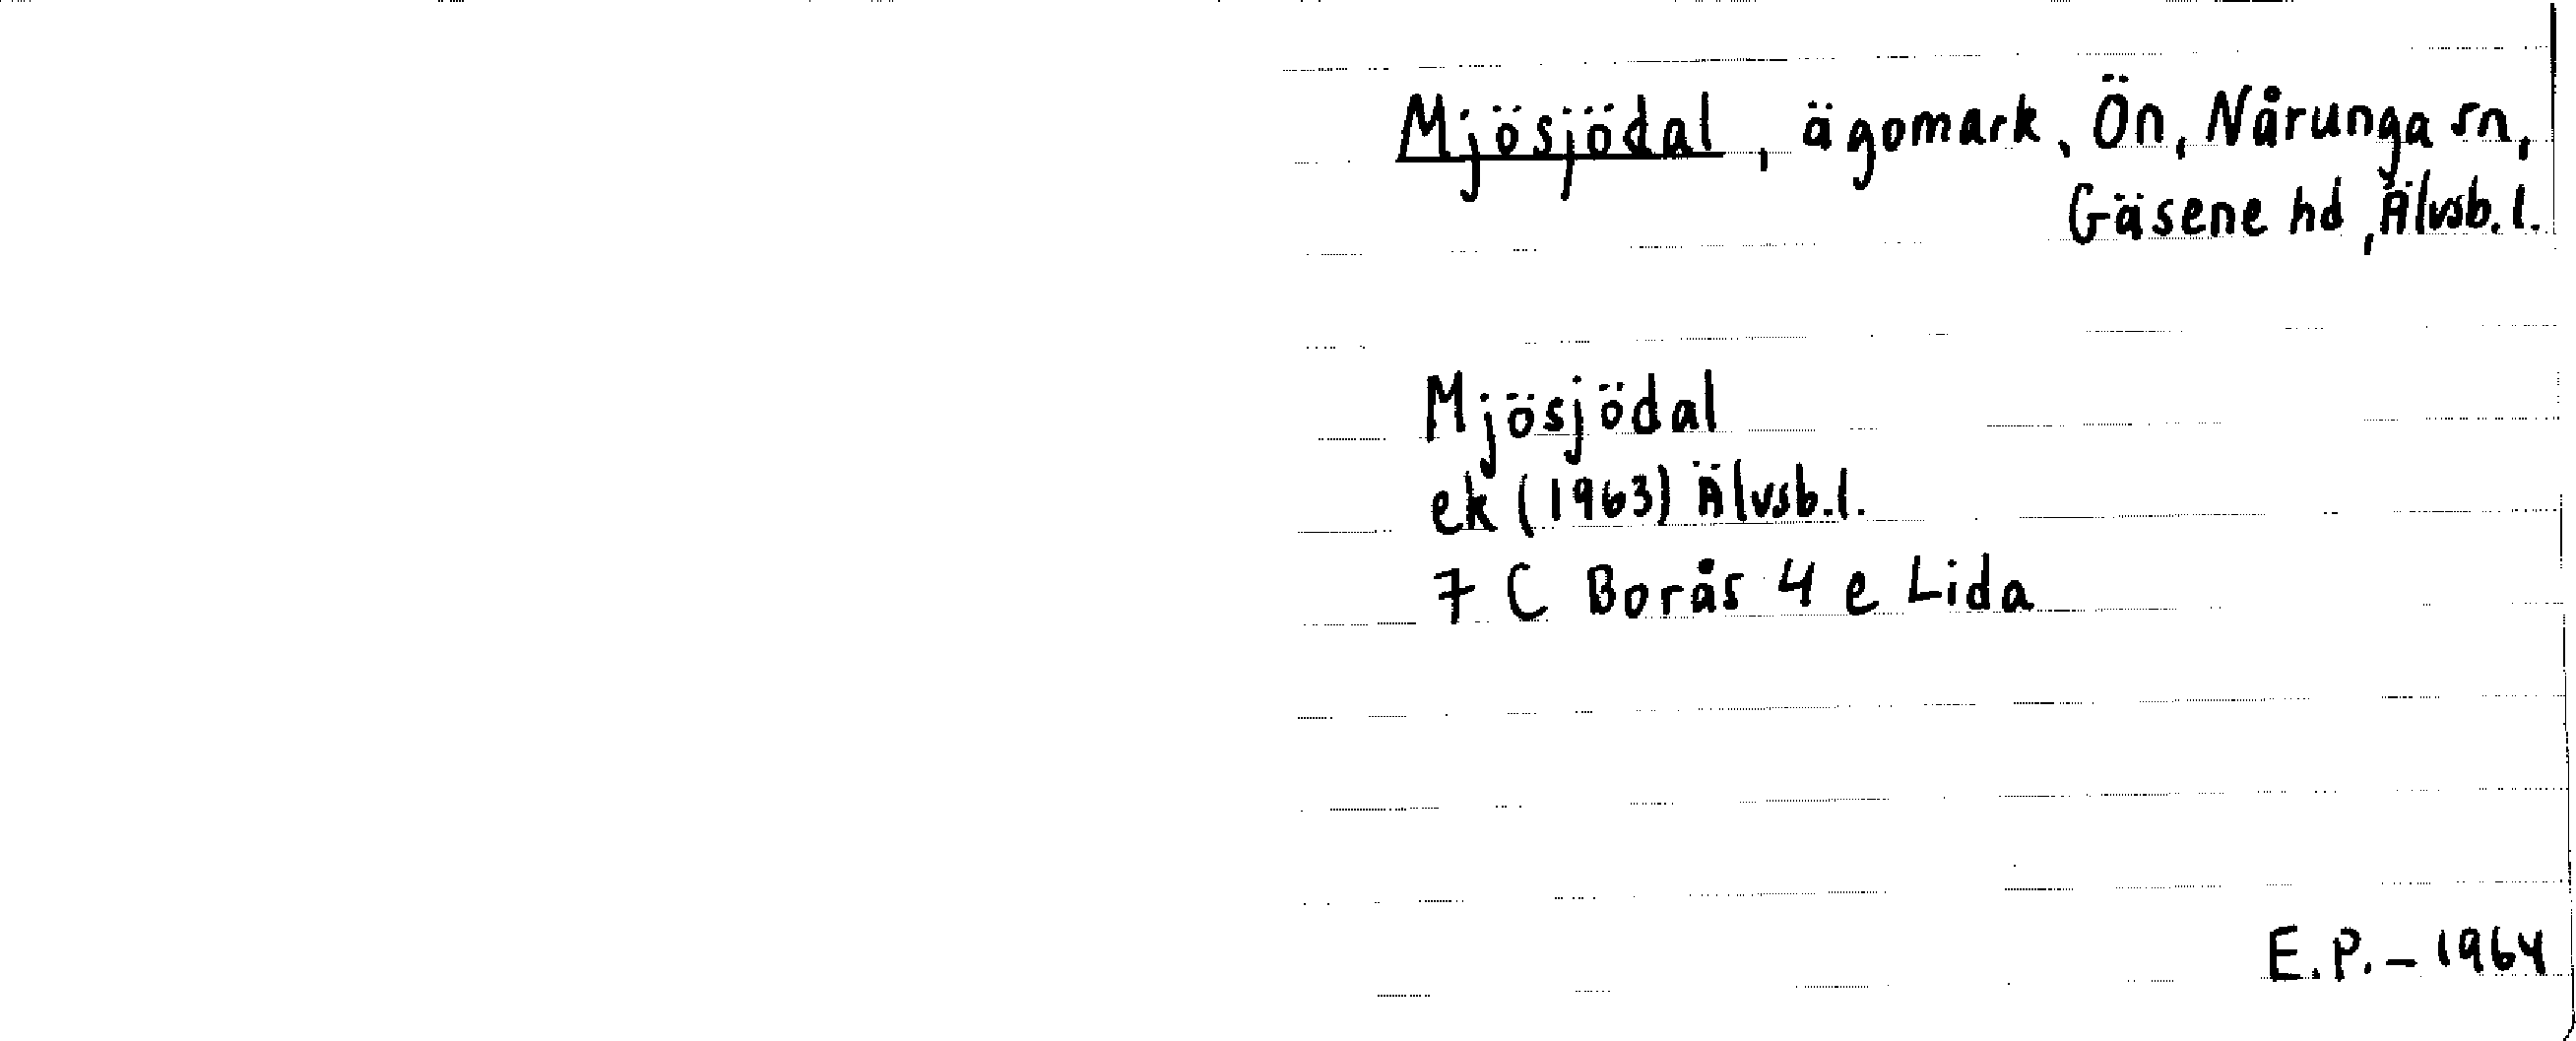 Mjösjödal, ägomark, Ön, Nårunga sn,
Gäsene hd, Älvsb.l.
Mjösjödal
ek (1963) Älvsb.l.
7 C Borås 4 e Lida
E.P. – 1964